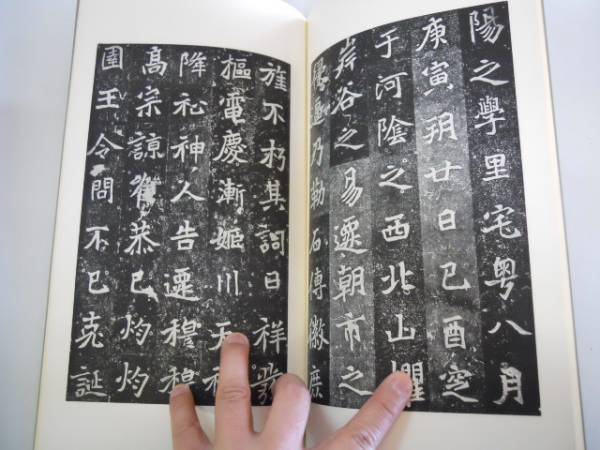 陽之學里宅粵八月
庚寅朔廿日己酉窆
于河陰之西北山懼
岸谷之易遷朝市之
乃勒石傳徽庶
旌不朽其詞曰祥
樞電慶漸姬川天
降祉神人告遷穆穆
高宗諒恭已灼灼
園王令問不已克誕